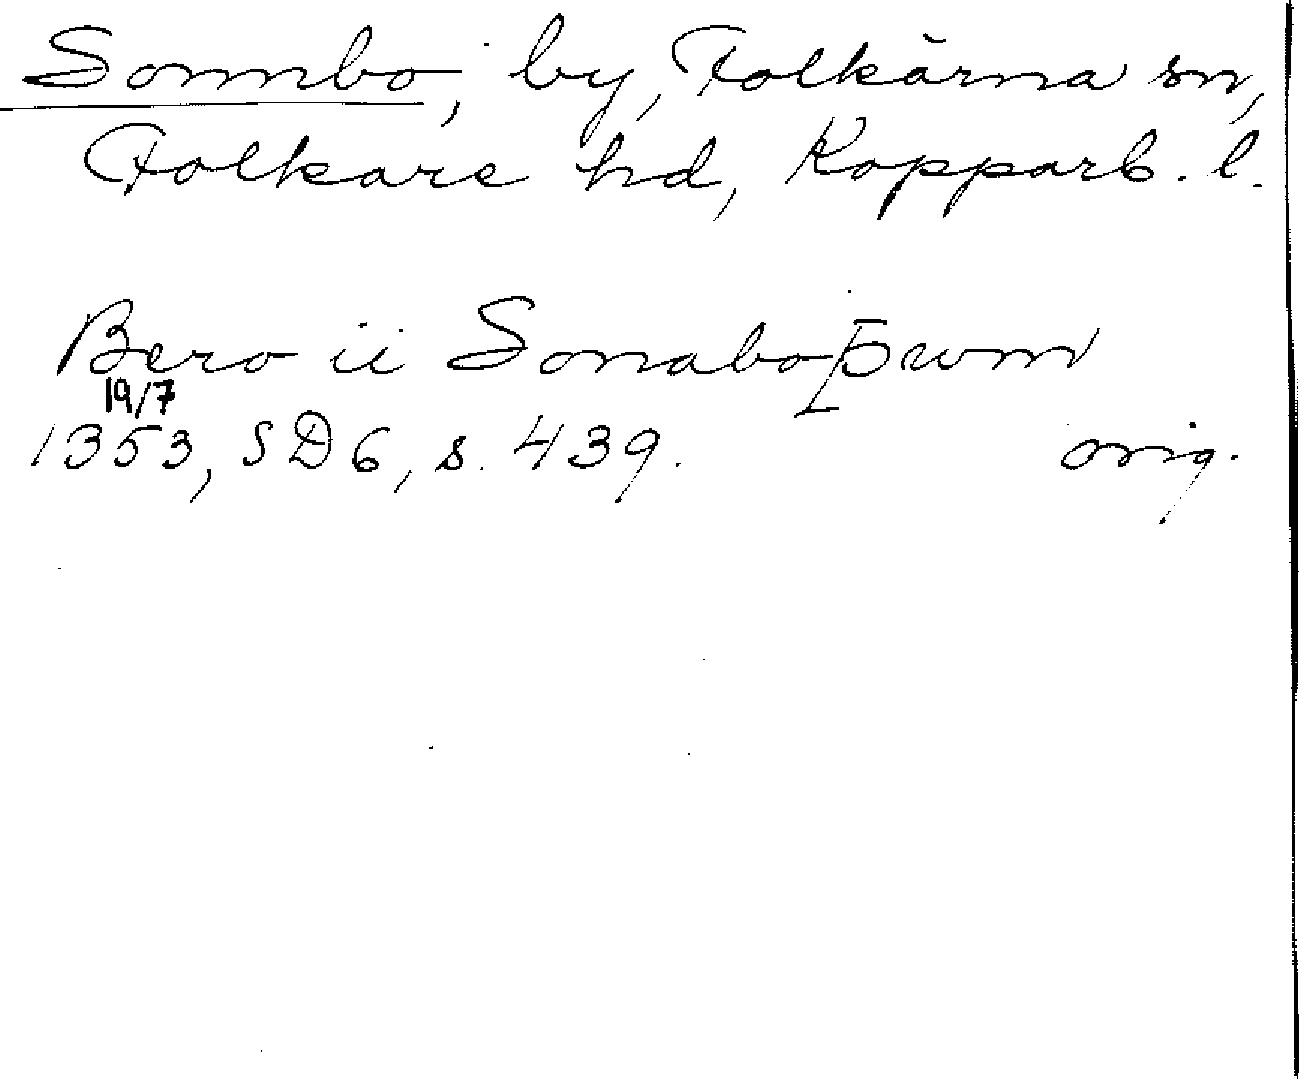 Sonnbo, by, Folkärna sn,
Folkare hd, Kopparb. l.
Bero ii Sonaboþwm
19/7
1353, SD6, s. 439. orig.